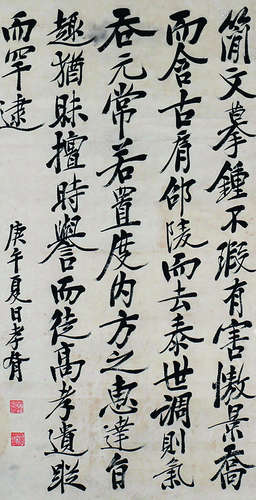 簡文摹鍾不瑕有害傲景喬
而含古肩邵陵而去泰世調則氣
吞元常若置度内方之惠達旨
趣猶昧擅時譽而徒高考遺蹤
而罕逮
庚午夏日孝胥